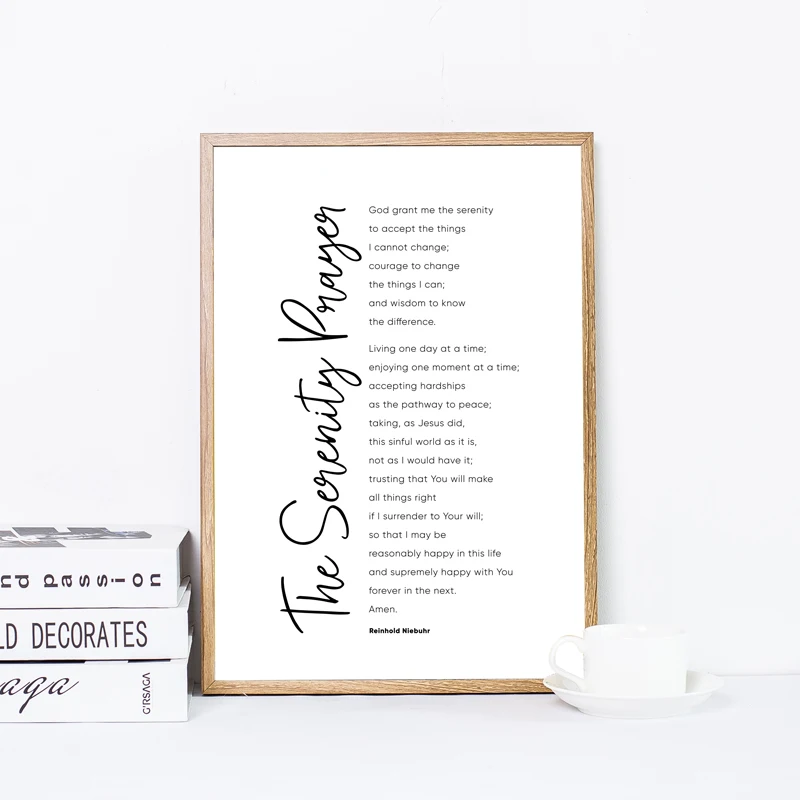 The Serenity Prayer
God grant me the serenity
to accept the things
I cannot change;
courage to change
the things I can;
and wisdom to know
the difference.
Living one day at a time;
enjoying one moment at a time;
accepting hardships
as the pathway to peace;
taking, as Jesus did,
this sinful world as it is,
not as I would have it;
trusting that You will make
all things right
if I surrender to Your will;
so that I may be
reasonably happy in this life
and supremely happy with You
forever in the next.
Amen.
Reinhold Niebuhr
nd passion
LD DECORATES
aga
G'RSAGA